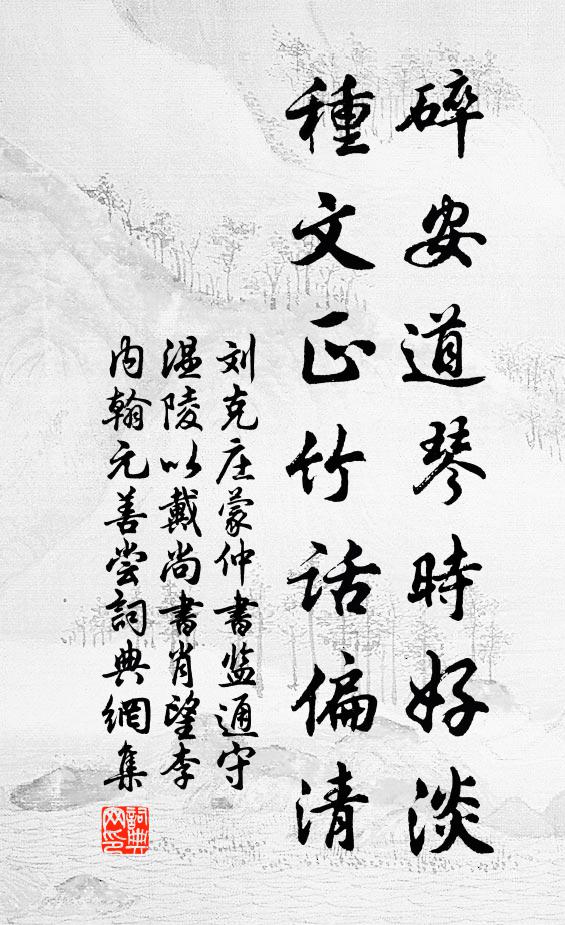 碎安道琴時好淡
種文正竹话偏清
刘克庄蒙仲書监通守
温陵以戴尚書肖望李
内翰元善尝詞典網集
詞典网印